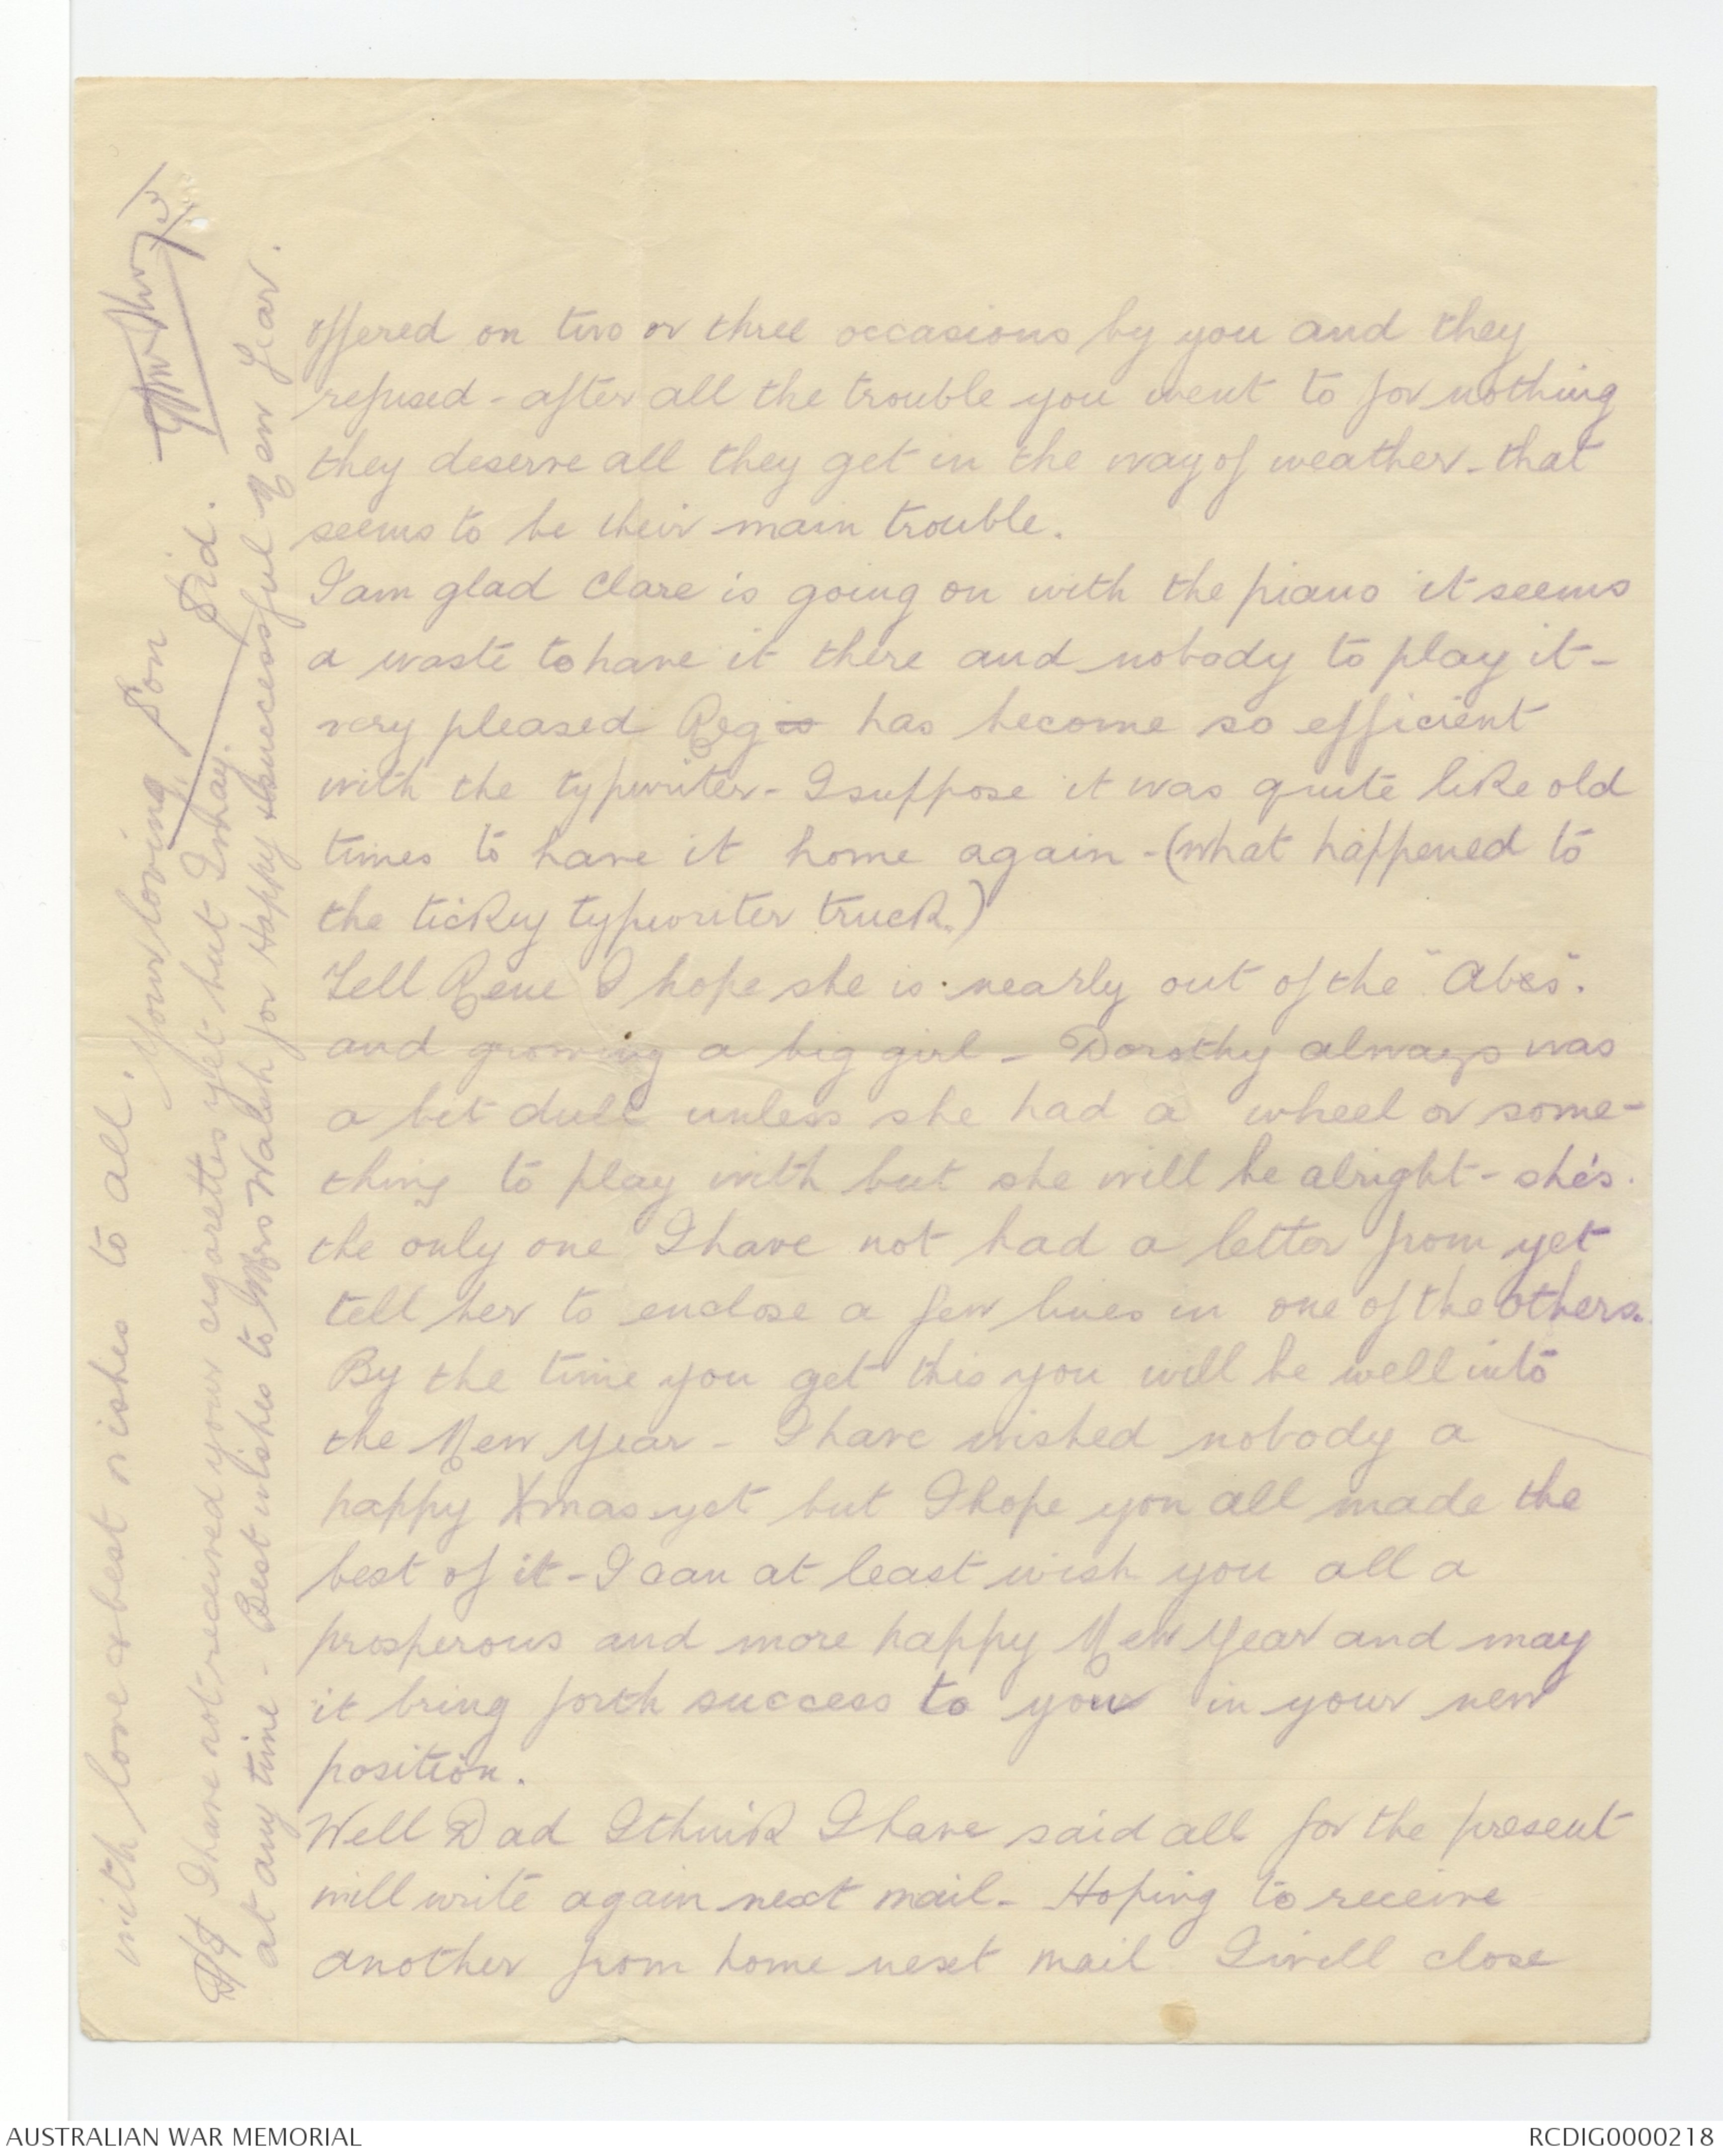 offered on two or three occasions by you and they
refused - after all the trouble you went to for nothing
they deserve all they get in the way of weather - that
seems to be their main trouble.
I am glad Clare is going on with the piano it seems
a waste to have it there and nobody to play it -
very pleased Reg is has become so efficient
with the typwriter - I suppose it was quite like old
times to have it home again - (what happened to
the tickey typwriter truck.)
Tell Rene I hope she is nearly out of the "Abcs".
and growing a big girl - Dorothy always was
a bit dull unless she had a wheel or some-
thing to play with but she will be alright - she's.
the only one I have not had a letter from yet
tell her to enclose a few lines in one of the others.
By the time you get this you will be well into
the New Year - I have wished nobody a
happy Xmas yet but I hope you all made the
best of it - I can at least wish you all a
prosperous and more happy New Year and may
it bring forth success to you in your new
position.
Well Dad I think I have said all for the present
will write again next mail - Hoping to receive
another from home next mail I will close
with love & best wishes to all. Your loving Son
Sid.
PS I have not received your cigarettes yet but I may
at any time - Best wishes to Mrs Walsh for Happy & successful New Year.
AUSTRALIAN WAR MEMORIAL
RCDIG0000218